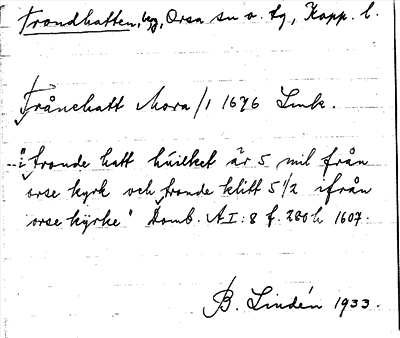 Trondhatten, bg, Orsa sn o. tg, Kopp. l.
Trånehatt Mora/1 1676 Lmk.
"i tronde hatt huilket är 5 mil från
orse kyrk och tronde klitt 5 1/2 ifrån
orse kÿrke" Domb. AI:8 f. 280 h 1607.
B. Lindén 1933.